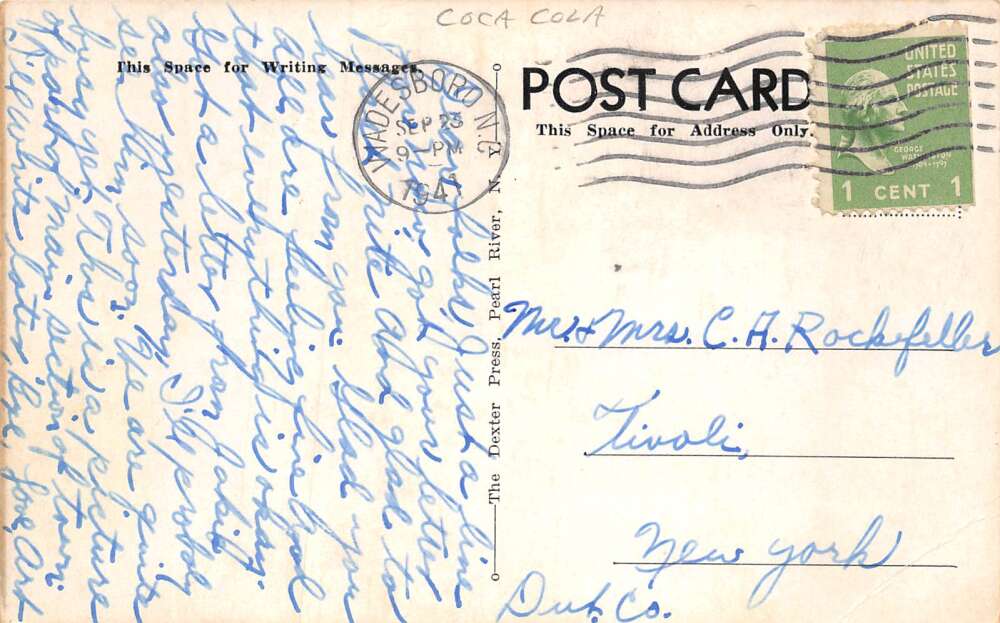 COCA COLA
This Space for Writing Messages.
POST CARD
This Space for Address Only.
WADESBORO N.C.
SEP 23
9 - PM
1941
UNITED
STATES
POSTAGE
GEORGE
WASHINGTON
1789-1797
1 CENT 1
The Dexter Press, Pearl River, N. Y.
folks: Just a line
got your letter
write. And glad to
hear from you. Glad you
all are feeling fine. And
that everything is okay.
Got a letter from
also yesterday. I'll probably
see him soon. We are quite
busy yet. This is a picture
of main section of town.
write lots Bye, Love, Art
Mr. & Mrs. C. A. Rockefeller
Tivoli,
New York
Dut. Co.